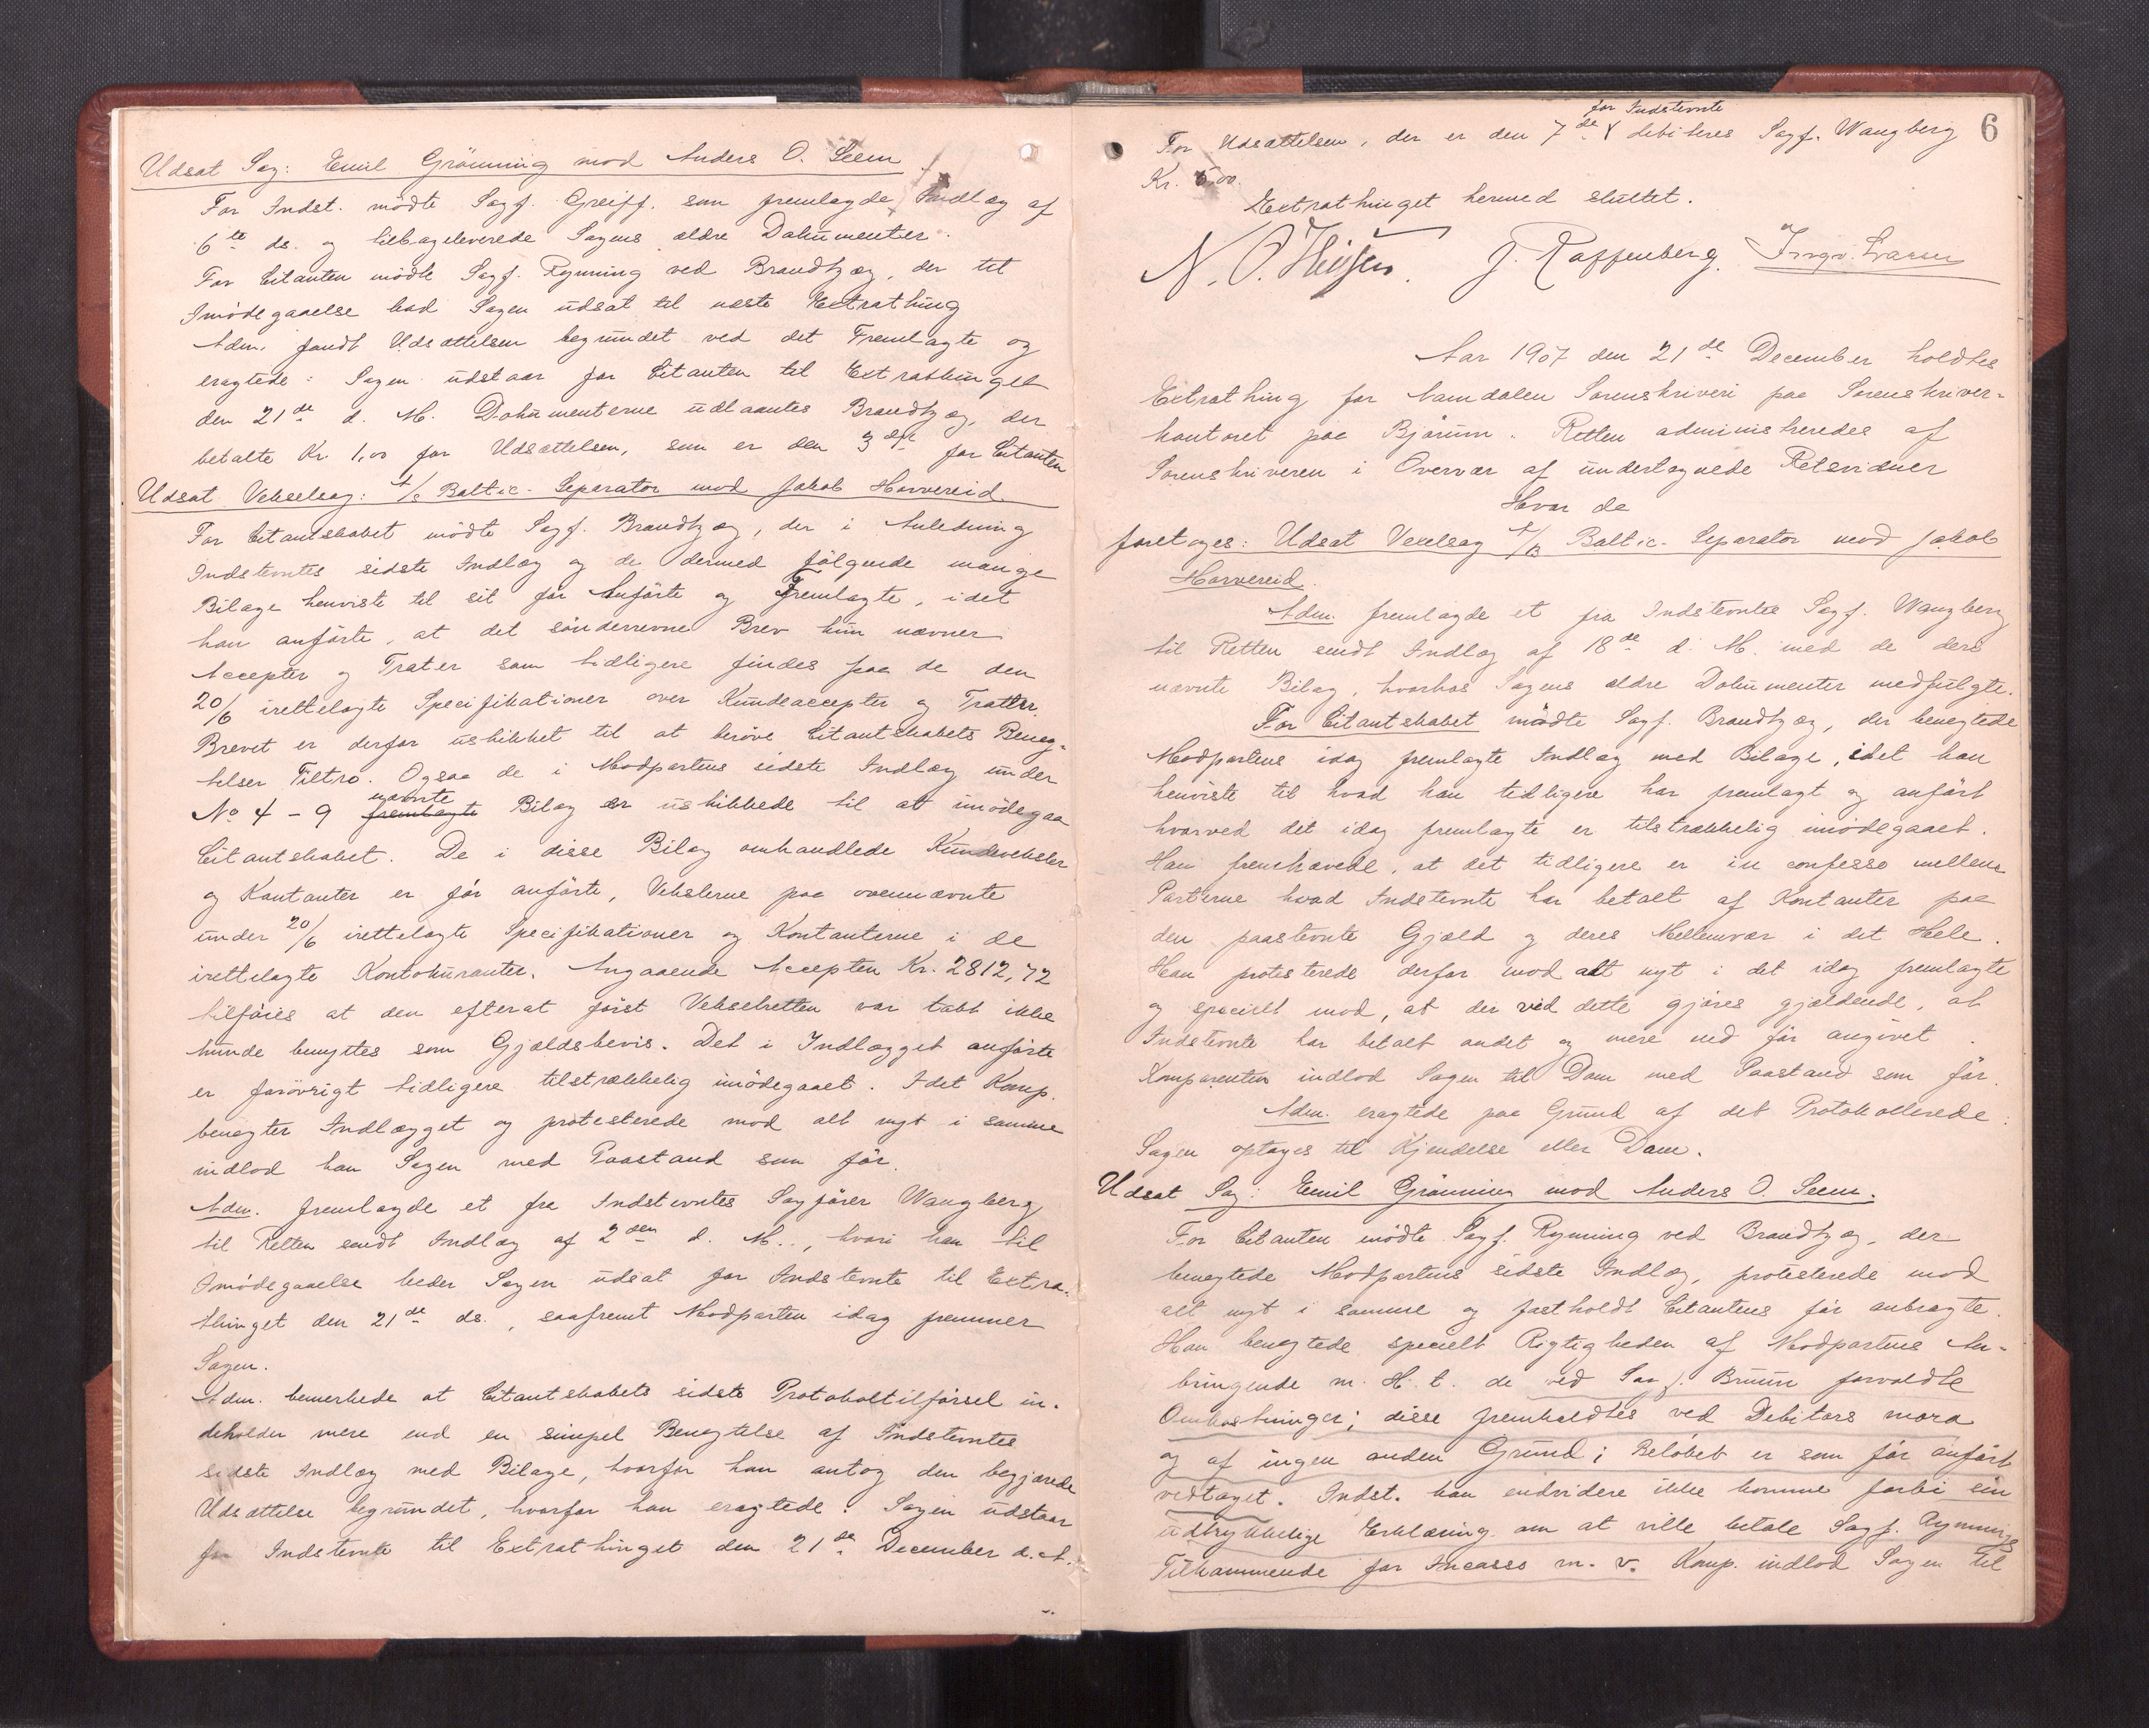 Udsat Sag: Emil Grönning mod Anders O. Seem.
For Indst. mödte Sagf. Greiff. som fremlagde Indlæg af
6te ds. og tilbageleverede Sagens ældre Dokumenter.
For Citanten mödte Sagf. Rynning ved Brandtzæg, der til
Imödegaaelse bad Sagen udsat til næste Extrathing
Adm. fandt Udsættelsen begrundet ved det Fremlagte og
eragtede: Sagen udstaar for Citanten til Extrathinget
den 21de d. M. Dokumenterne udlaantes Brandtzæg, der
betalte Kr. 1,00 for Udsættelsen, som er den 3die for Citanten
Udsat Vekselsag: A/S Baltic-Separator mod Jakob Horvereid
For Citantskabet mödte Sagf. Brandtzæg, der i Anledning
Indstevntes sidste Indlæg og de dermed fölgende mange
Bilage henviste til sit för Anförte og Fremlagte, idet
han anförte, at det sönderrevne Brev kun nævner
Accepter og Trater som tidligere findes paa de den
20/6 irettelagte Specifikationer over Kundeaccepter og Tratter.
Brevet er derfor uskikket til at beröve Citantskabets Beneg-
telser Tiltro. Ogsaa de i Modpartens sidste Indlæg under
nævnte
No 4 - 9 fremlagte Bilag er uskikkede til at imödegaa
Citantskabet. De i disse Bilag omhandlede Kundeveksler
og Kontanter er för anförte, Vekslerne paa ovennævnte
under 20/6 irettelagte Specifikationer og Kontanterne i de
irettelagte Kontokuranter. Angaaende Accepten Kr. 2812,72
tilföies at den efterat först Vekselretten var tabt ikke
kunde benyttes som Gjældsbevis. Det i Indlægget anförte
er forövrigt tidligere tilstrækkelig imödegaaet. Idet Komp.
benegter Indlægget og protesterede mod alt nyt i samme
indlod han Sagen med Paastand som för.
Adm. fremlagde et fra Indstevntes Sagförer Wangberg
til Retten sendt Indlæg af 2den d. M., hvori han til
Imödegaaelse beder Sagen udsat for Indstevnte til Extra-
thinget den 21de ds., saafremt Modparten idag fremmer
Sagen.
Adm. bemerkede at Citantskabets sidste Protokoltilförsel in-
deholder mere end en simpel Benegtelse af Indstevntes
sidste Indlæg med Bilage, hvorfor han antog den begjærede
Udsættelse begrundet, hvorfor han eragtede: Sagen udstaar
for Indstevnte til Extrathinget den 21de December d. A.
6
for Indstevnte
For Udsættelsen, der er den 7de debiteres Sagf. Wangberg
Kr. 5,00.
Extrathinget hermed sluttet.
J. Raffenberg. Ingv. Svarva
Aar 1907 den 21de December holdtes
Extrathing for Namdalen Sorenskriveri paa Sorenskriver-
kontoret paa Bjørum. Retten administreredes af
Sorenskriveren i Overvær af undertegnede Retsvidner
Hvor da
foretoges: Udsat Vexelsag A/S Baltic-Separator mod Jakob
Horvereid.
Adm. fremlagde et fra Indstevntes Sagf. Wangberg
til Retten sendt Indlæg af 18de d. M. med de deri
nævnte Bilag, hvorhos Sagens ældre Dokumenter medfulgte.
For Citantskabet mödte Sagf. Brandtzæg, der benegtede
Modpartens idag fremlagte Indlæg med Bilage, idet han
henviste til hvad han tidligere har fremlagt og anfört
hvorved det idag fremlagte er tilstrækkelig imödegaaet.
Han fremhævede, at det tidligere er in confesso mellem
Parterne hvad Indstevnte har betalt af Kontanter paa
den paastevnte Gjæld og deres Mellemvær i det Hele.
Han protesterede derfor mod alt nyt i det idag fremlagte
og specielt mod, at der ved dette gjöres gjældende, at
Indstevnte har betalt andet og mere end för angivet.
Komparenten indlod Sagen til Dom med Paastand som för.
Adm. eragtede paa Grund af det Protokollerede:
Sagen optages til Kjendelse eller Dom.
Udsat Sag: Emil Grönning mod Anders O. Seem.
For Citanten mödte Sagf. Rynning ved Brandtzæg, der
benegtede Modpartens sidste Indlæg, protesterede mod
alt nyt i samme og fastholdt Citantens för anbragte.
Han benegtede specielt Rigtigheden af Modpartens An-
bringende m. H. t. de ved Sagf. Bruun forvoldte
Omkostninger; disse fremholdtes ved Debitors mora
og af ingen anden Grund; Belöbet er som för anfört
vedtaget. Indst. kan endvidere ikke komme forbi sin
udtrykkelige Erklæring om at ville betale Sagf. Rynnings
Tilkommende for Incasso m. v. Komp. indlod Sagen til